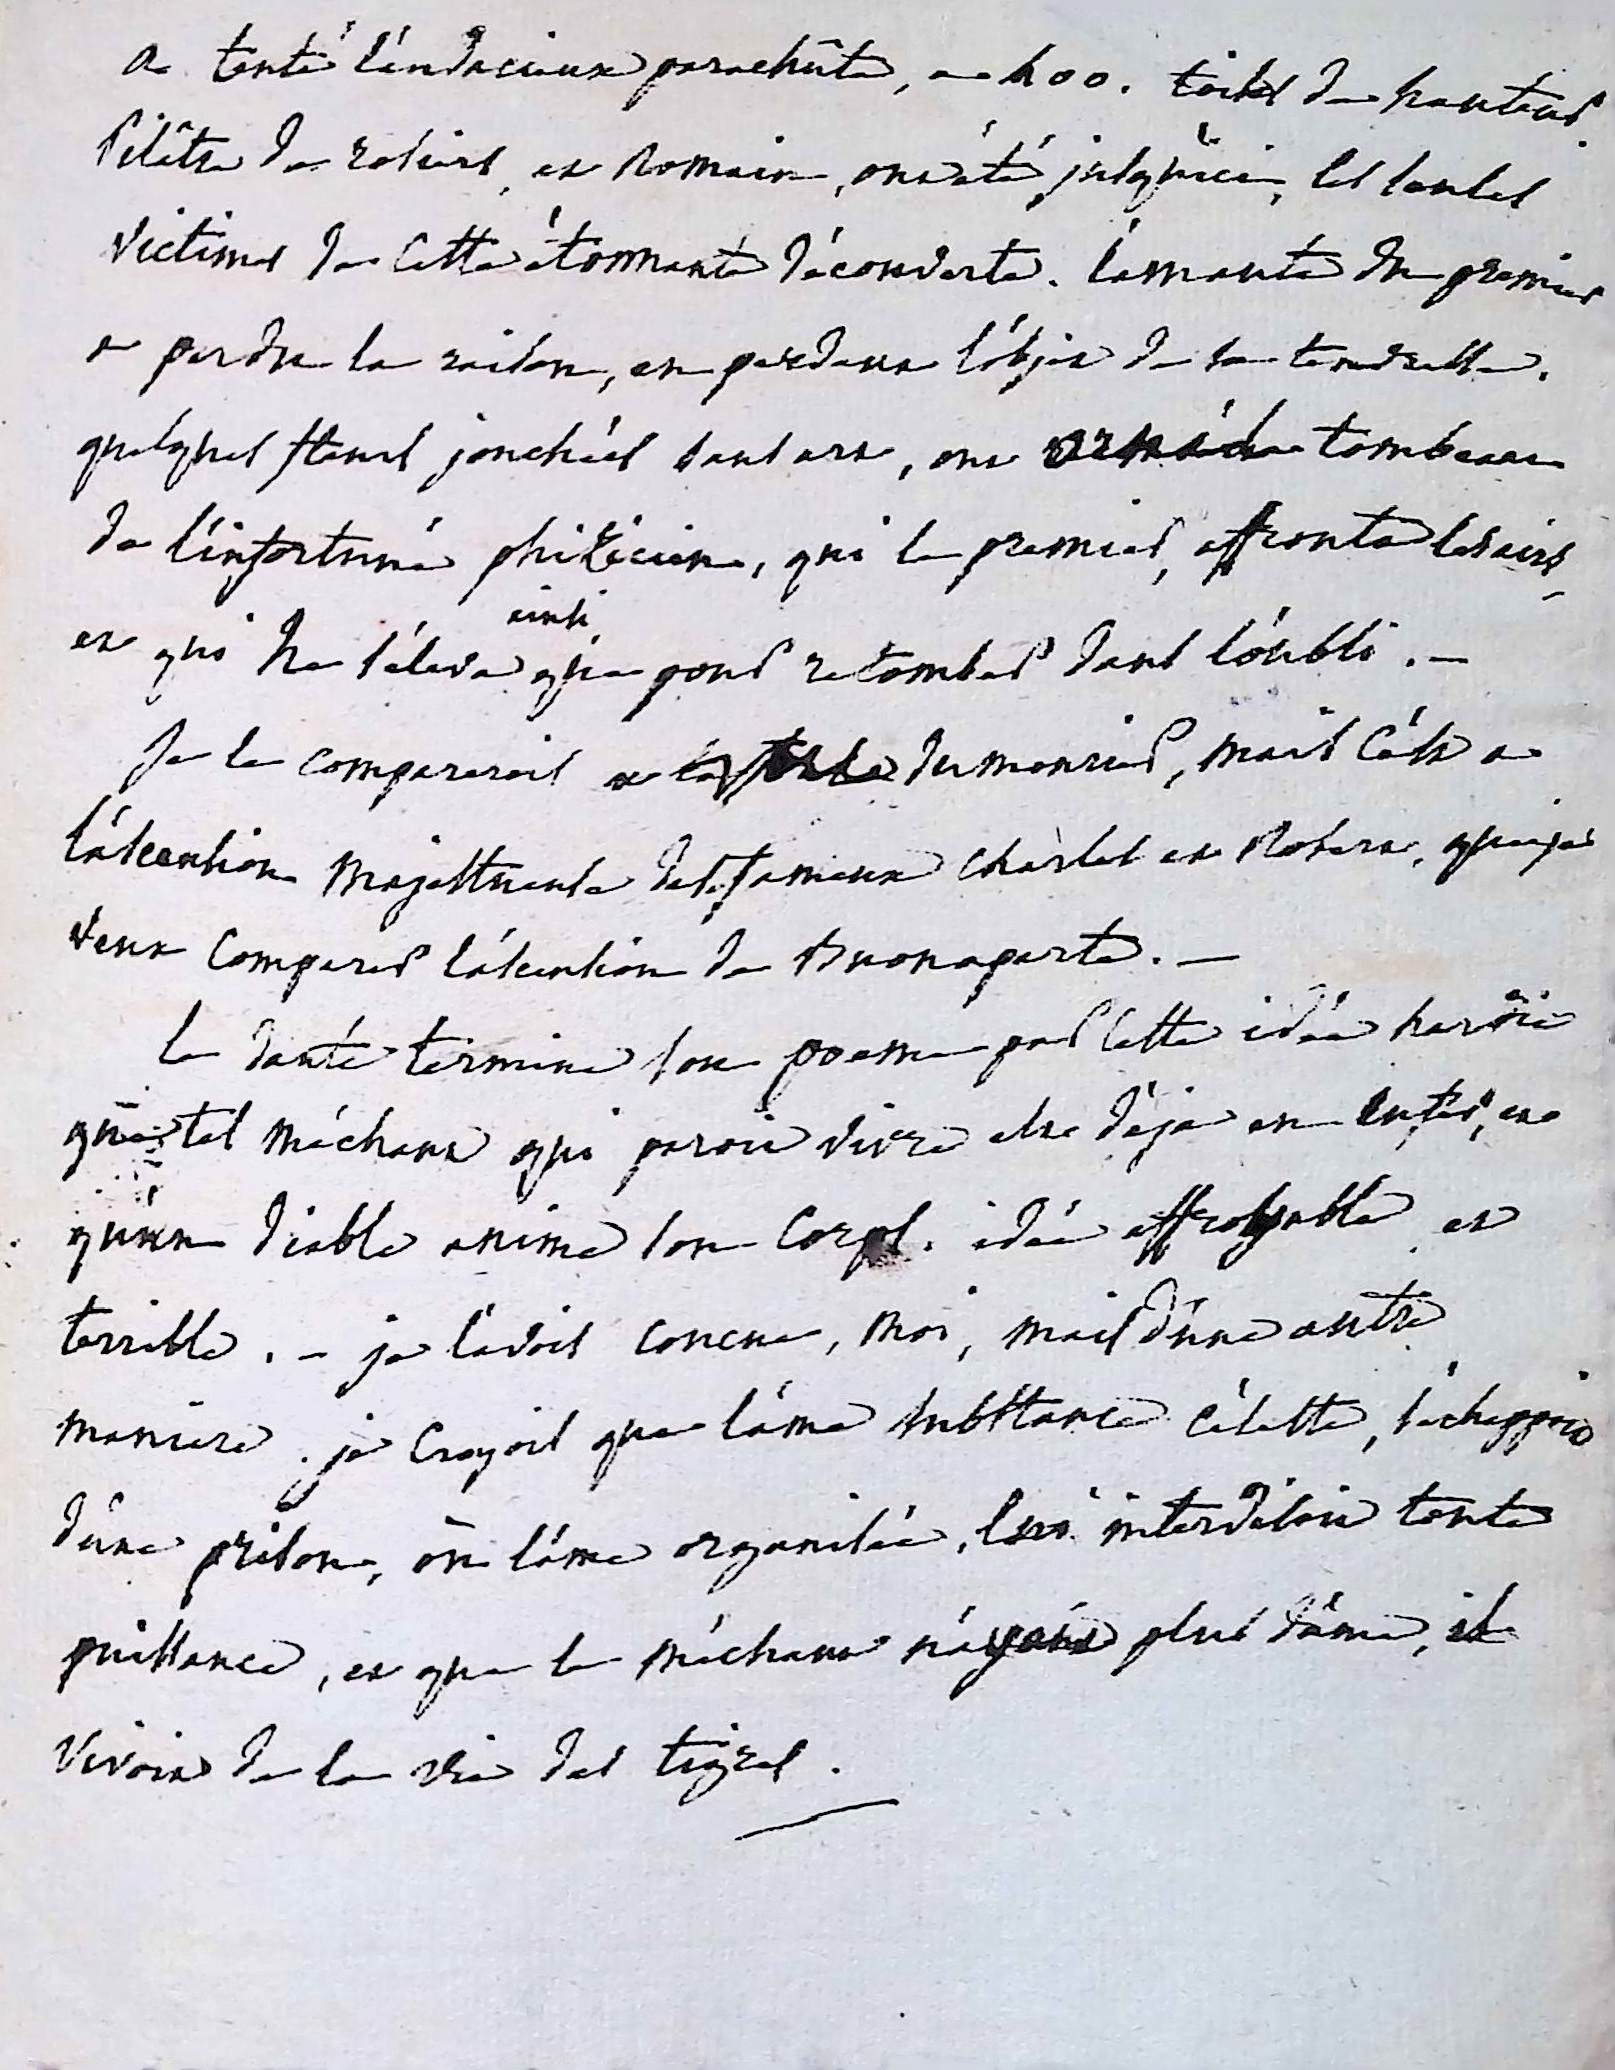 a tenté l'audacieux parachûte, a 400. toises de hauteur.
Pilâtre de roziers, et Romain, ont été jusqu'ici, les seules
victimes de cette étonnante découverte. l'amante du premier
a perdu la raison, en perdant l'objet de sa tendresse.
quelques fleurs jonchées sans art, ont orné le tombeau
de l'infortuné phisicien, qui le premier, affronta les airs,
et qui ne s'éleva ainsi que pour retomber dans l'oubli. —
Je le comparerois a dumourier, mais c'est a
l'ascension majestueuse des fameux charles et Robert, que je
veux comparer l'ascension de Buonaparte. —
Le dante termine son poeme par cette idée
que tel méchant qui paroit vivre est déja en enfer, et
qu'un diable anime son corps. idée effroyable et
terrible. — je l'avois conçue, moi, mais d'une autre
maniere. je croyois que l'âme substance céleste, s'échappoit
d'une prison, où l'âme organisée, lui interdisoit toute
puissance, et que le méchant n'ayant plus d'âme, il
vivoit de la vie des tigres.